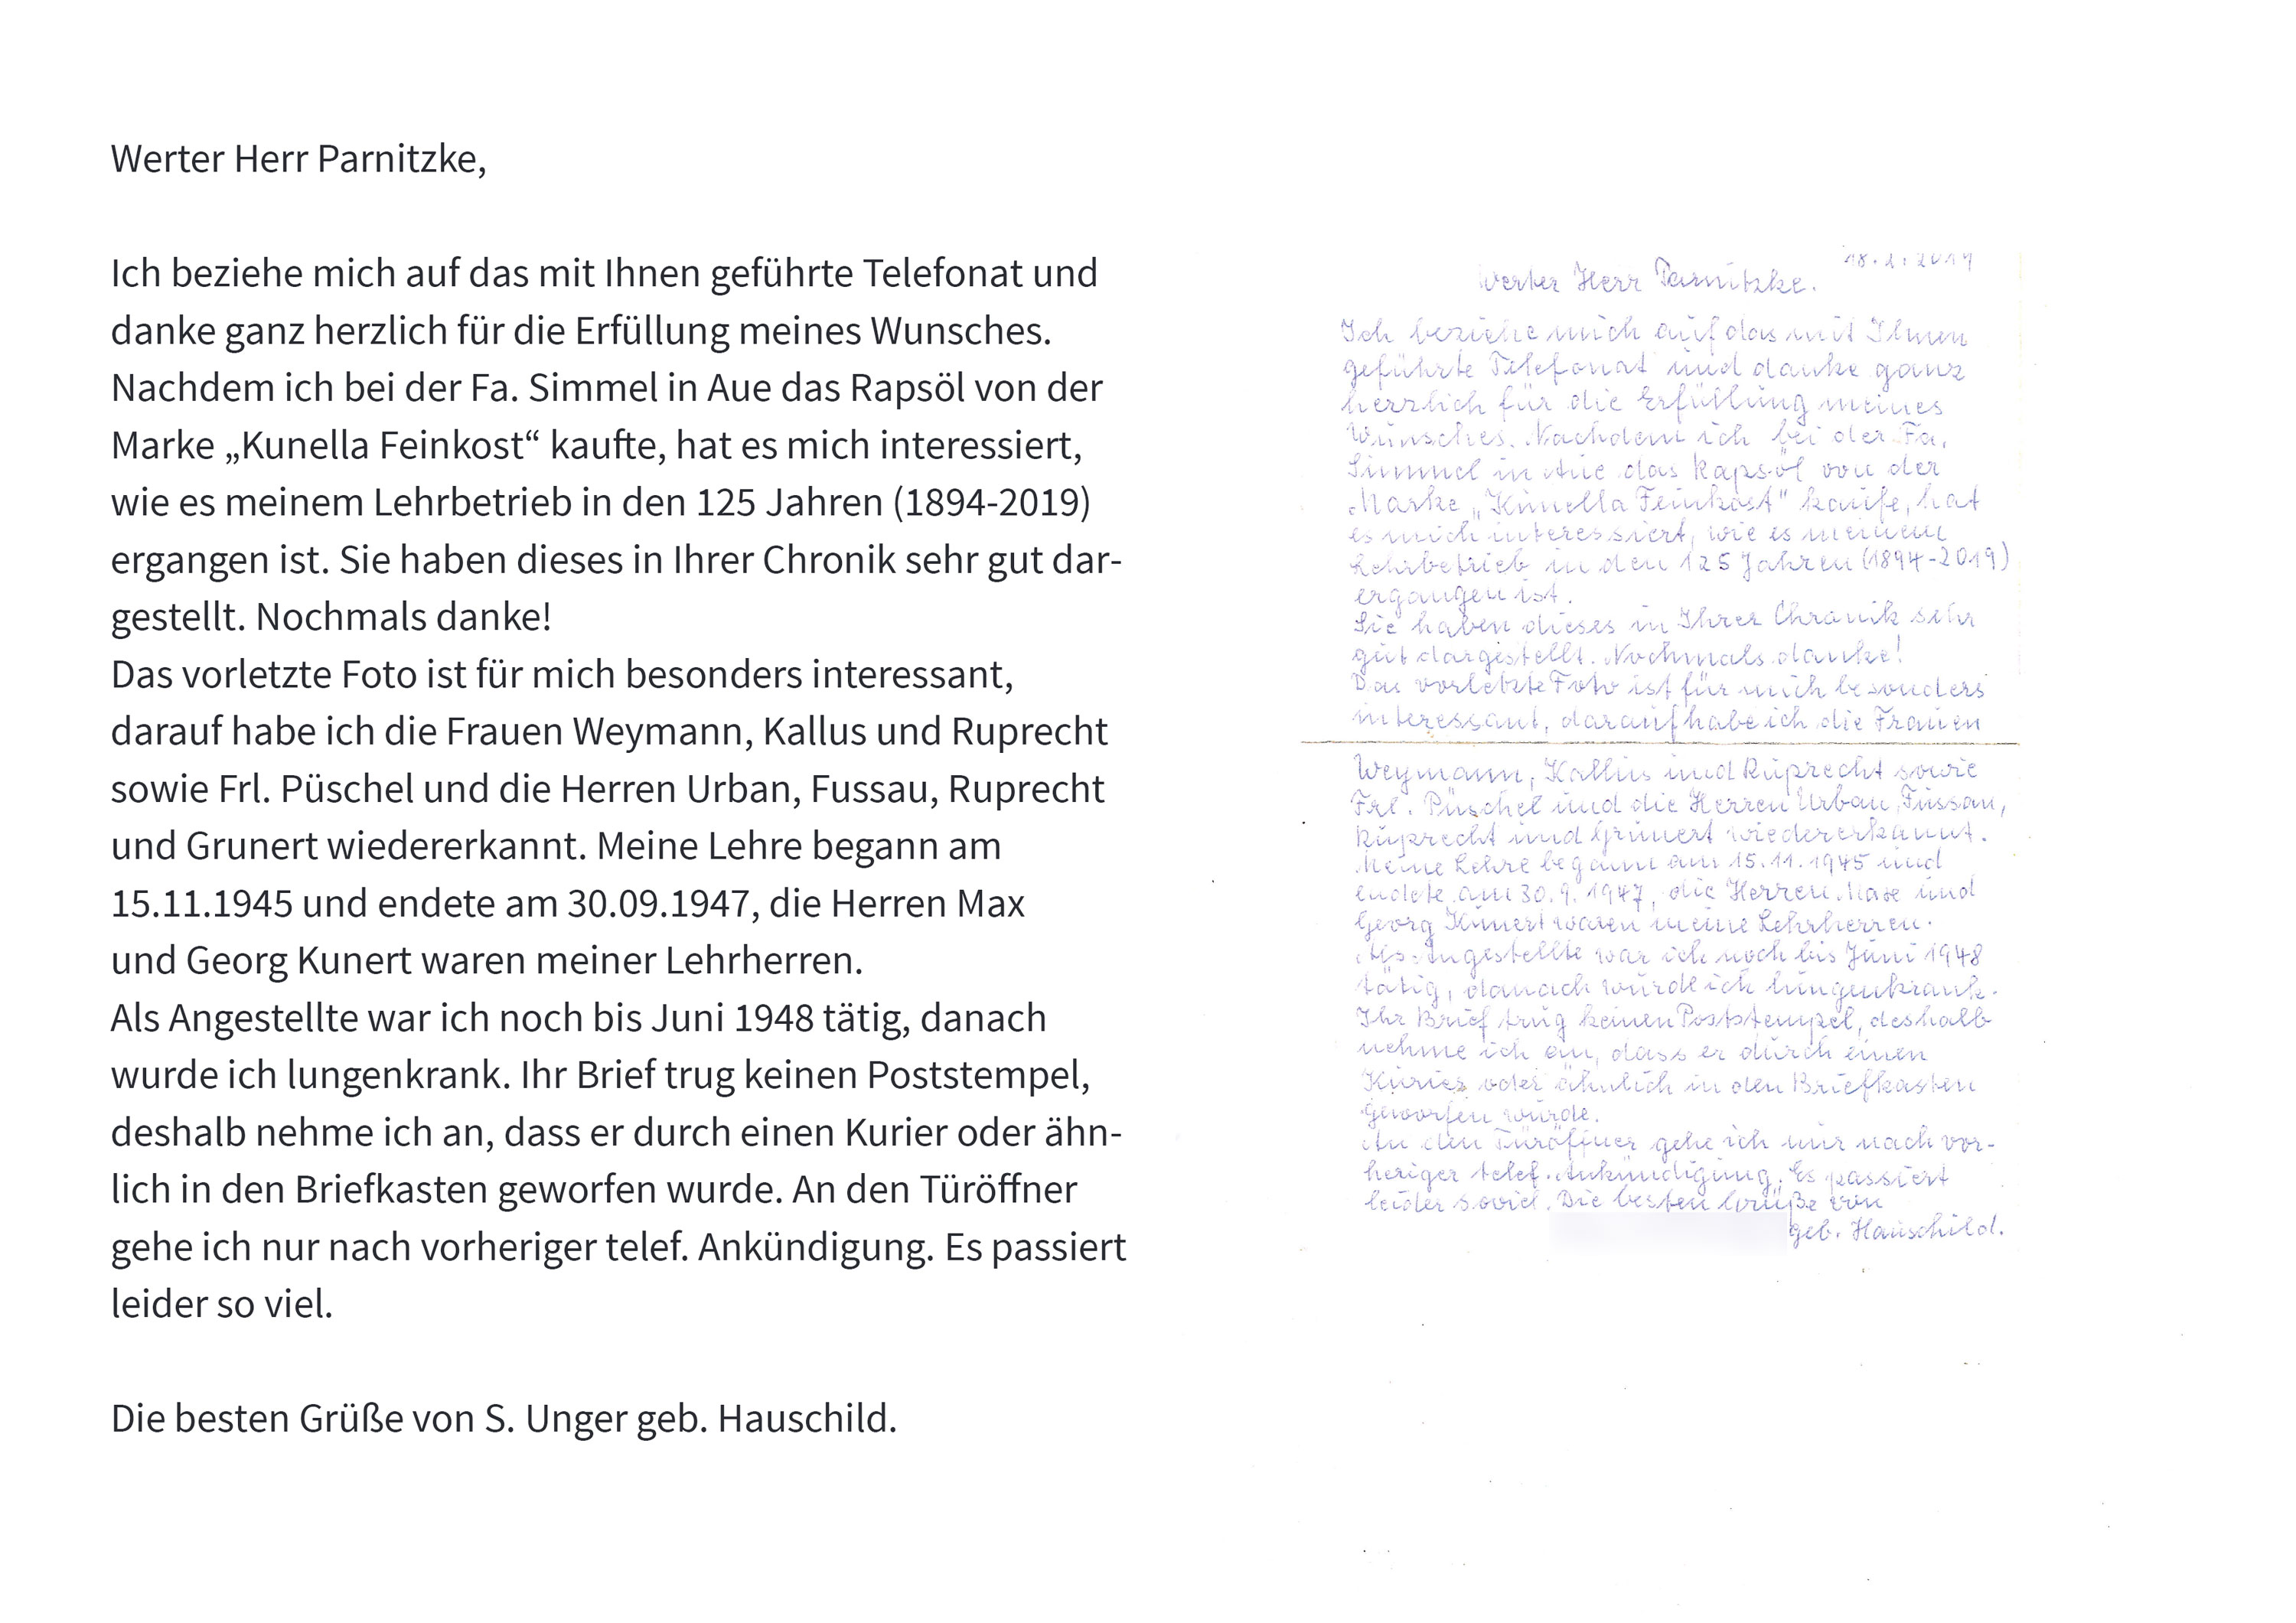 Werter Herr Parnitzke,
Ich beziehe mich auf das mit Ihnen geführte Telefonat und
danke ganz herzlich für die Erfüllung meines Wunsches.
Nachdem ich bei der Fa. Simmel in Aue das Rapsöl von der
Marke „Kunella Feinkost“ kaufte, hat es mich interessiert,
wie es meinem Lehrbetrieb in den 125 Jahren (1894-2019)
ergangen ist. Sie haben dieses in Ihrer Chronik sehr gut dar-
gestellt. Nochmals danke!
Das vorletzte Foto ist für mich besonders interessant,
darauf habe ich die Frauen Weymann, Kallus und Ruprecht
sowie Frl. Püschel und die Herren Urban, Fussau, Ruprecht
und Grunert wiedererkannt. Meine Lehre begann am
15.11.1945 und endete am 30.09.1947, die Herren Max
und Georg Kunert waren meiner Lehrherren.
Als Angestellte war ich noch bis Juni 1948 tätig, danach
wurde ich lungenkrank. Ihr Brief trug keinen Poststempel,
deshalb nehme ich an, dass er durch einen Kurier oder ähn-
lich in den Briefkasten geworfen wurde. An den Türöffner
gehe ich nur nach vorheriger telef. Ankündigung. Es passiert
leider so viel.
Die besten Grüße von S. Unger geb. Hauschild.
Werter Herr Parnitzke.
Ich beziehe mich auf das mit Ihnen
geführte Telefonat und danke ganz
herzlich für die Erfüllung meines
Wunsches. Nachdem ich bei der Fa.
Simmel in Aue das Rapsöl von der
Marke „Kunella Feinkost" kaufe, hat
es mich interessiert, wie es meinem
Lehrbetrieb in den 125 Jahren (1894-2019)
ergangen ist.
Sie haben dieses in Ihrer Chronik sehr
gut dargestellt. Nochmals danke!
Das vorletzte Foto ist für mich besonders
interessant, darauf habe ich die Frauen
Weymann, Kallus und Ruprecht sowie
Frl. Püschel und die Herren Urban, Fussau,
Ruprecht und Grunert wiedererkannt.
Meine Lehre begann am 15.11.1945 und
endete am 30.9.1947, die Herren Max und
Georg Kunert waren meine Lehrherren.
Als Angestellte war ich noch bis Juni 1948
tätig, danach wurde ich lungenkrank.
Ihr Brief trug keinen Poststempel, deshalb
nehme ich an, dass er durch einen
Kurier oder ähnlich in den Briefkasten
geworfen wurde.
An den Türöffner gehe ich nur nach vor-
heriger telef. Ankündigung. Es passiert
leider soviel. Die besten Grüße von
geb. Hauschild.